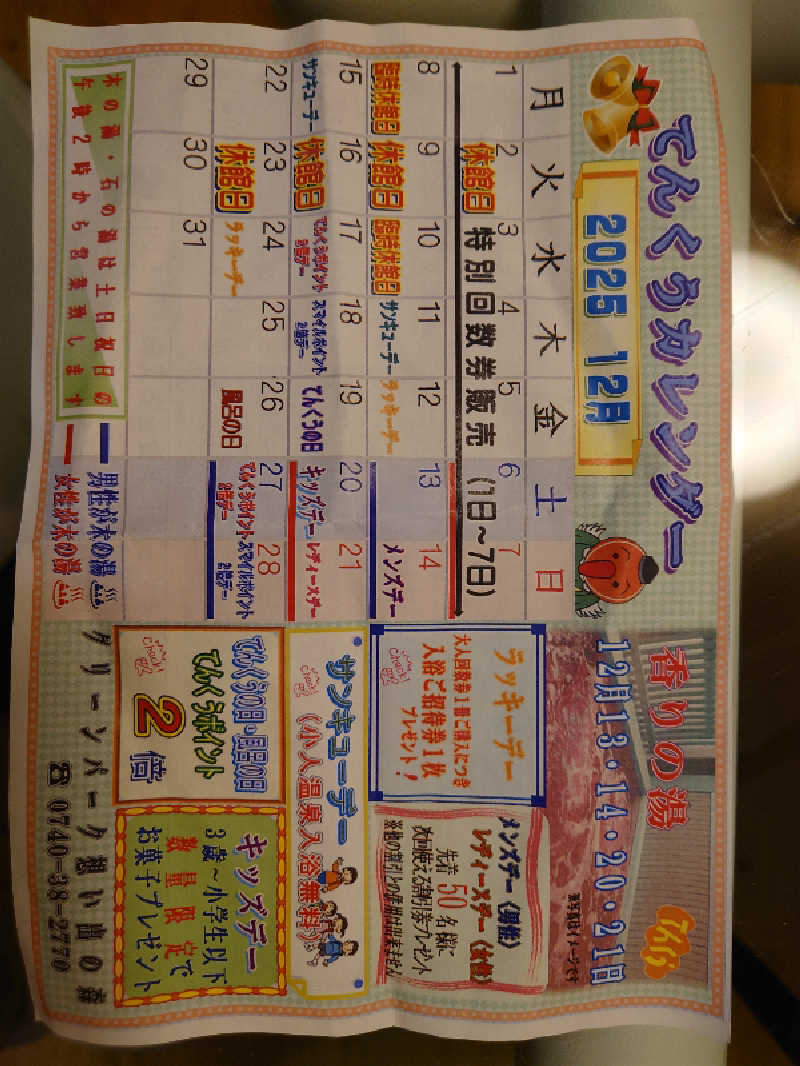 てんくうカレンダー
2025 12月
月 火 水 木 金 土 日
1 2 3 4 5 6 7
休館日
特別回数券販売 (1日～7日)
8 9 10 11 12 13 14
臨時休館日 休館日 臨時休館日 サンキューデー ラッキーデー メンズデー
15 16 17 18 19 20 21
サンキューデー 休館日 てんくうポイント2倍デー スマイルポイント2倍デー てんくうの日 キッズデー レディースデー
22 23 24 25 26 27 28
休館日 ラッキーデー 風呂の日 てんくうポイント2倍デー スマイルポイント2倍デー
29 30 31
木の湯・石の湯は土日祝日の
午後2時から営業致します
男性が木の湯
女性が木の湯
香りの湯
12月13・14・20・21日
てんくう
写真はイメージです
ラッキーデー
大人回数券1冊ご購入につき
入浴ご招待券1枚
プレゼント!
check!
メンズデー (男性)
レディースデー (女性)
先着 50 名様に
次回使える割引券プレゼント
※他の割引との併用は出来ません
サンキューデー
(小人温泉入浴無料)
check!
てんくうの日・風呂の日
てんくうポイント
2倍
check!
キッズデー
3歳～小学生以下
数量限定で
お菓子プレゼント
グリーンパーク想い出の森
☎ 0740-38-2770